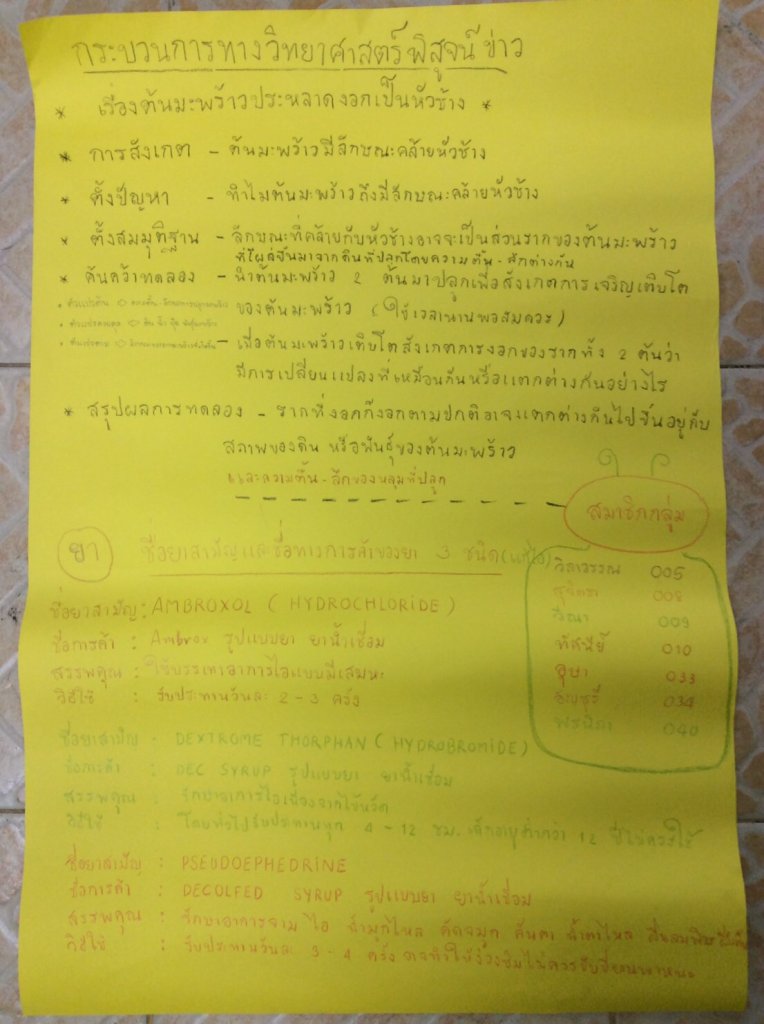 กระบวนการทางวิทยาศาสตร์พิสูจน์ข่าว
* เรื่องต้นมะพร้าวประหลาดงอกเป็นหัวช้าง *
* การสังเกต - ต้นมะพร้าวมีลักษณะคล้ายหัวช้าง
* ตั้งปัญหา - ทำไมต้นมะพร้าวถึงมีลักษณะคล้ายหัวช้าง
* ตั้งสมมุติฐาน - ลักษณะที่คล้ายกับหัวช้างอาจจะเป็นส่วนรากของต้นมะพร้าว
ที่โผล่ขึ้นมาจากดินที่ปลูกโดยความตื้น-ลึกต่างกัน
* ค้นคว้าทดลอง - นำต้นมะพร้าว 2 ต้นมาปลูกเพื่อสังเกตการเจริญเติบโต
ของต้นมะพร้าว (ใช้เวลานานพอสมควร)
- เมื่อต้นมะพร้าวเติบโตสังเกตการงอกของรากทั้ง 2 ต้นว่า
มีการเปลี่ยนแปลงที่เหมือนกันหรือแตกต่างกันอย่างไร
* สรุปผลการทดลอง - รากที่งอกก็งอกตามปกติอาจแตกต่างกันไปขึ้นอยู่กับ
สภาพของดิน หรือพันธุ์ของต้นมะพร้าว
และความตื้น-ลึกของหลุมที่ปลูก
สมาชิกกลุ่ม
วิลาวรรณ 005
008
วีณา 009
ทัศนีย์ 010
อุษา 033
034
040
ยา ชื่อยาสามัญและชื่อทางการค้าของยา 3 ชนิด (แก้ไอ)
ชื่อยาสามัญ : AMBROXOL (HYDROCHLORIDE)
ชื่อการค้า : Ambrox รูปแบบยา ยาน้ำเชื่อม
สรรพคุณ : ใช้บรรเทาอาการไอแบบมีเสมหะ
วิธีใช้ : รับประทานวันละ 2-3 ครั้ง
ชื่อยาสามัญ : DEXTROME THORPHAN (HYDROBROMIDE)
ชื่อการค้า : DEC SYRUP รูปแบบยา ยาน้ำเชื่อม
สรรพคุณ : รักษาอาการไอเนื่องจากไข้หวัด
วิธีใช้ : โดยทั่วไปรับประทานทุก 4-12 ชม. เด็กอายุต่ำกว่า 12 ปีไม่ควรใช้
ชื่อยาสามัญ : PSEUDOEPHEDRINE
ชื่อการค้า : DECOLFED SYRUP รูปแบบยา ยาน้ำเชื่อม
สรรพคุณ : รักษาอาการจาม ไอ น้ำมูกไหล คัดจมูก คันตา น้ำตาไหล
วิธีใช้ : รับประทานวันละ 3-4 ครั้ง อาจทำให้ง่วงซึมไม่ควรขับขี่ยานพาหนะ